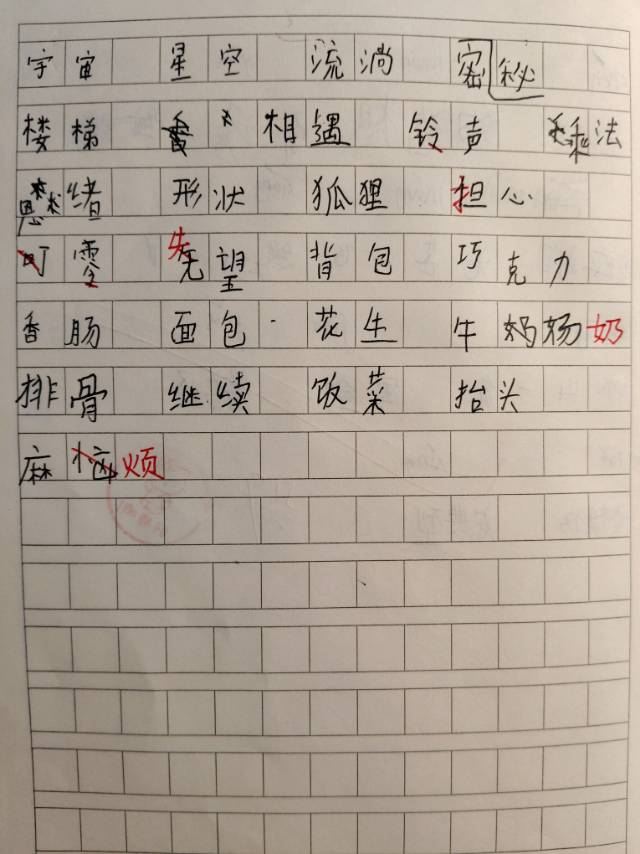 宇宙 星空 流淌 密秘
楼梯 相遇 铃声 乘法
绪 形状 狐狸 担心
叮零 失望 背包 巧克力
香肠 面包 花生 牛 奶
排骨 继续 饭菜 抬头
麻恼烦